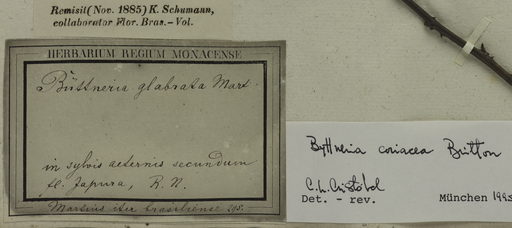 Remisit (Nov. 1885) K. Schumann,
collaborator Flor. Bras.—Vol.
HERBARIUM REGIUM MONACENSE
Büttneria glabrata Mart.
in sylvis aeternis secundum
fl. Japura, R. N.
Martius iter brasiliense
Byttneria coriacea Britton
C. L. Cristóbal
Det. - rev. München 1985